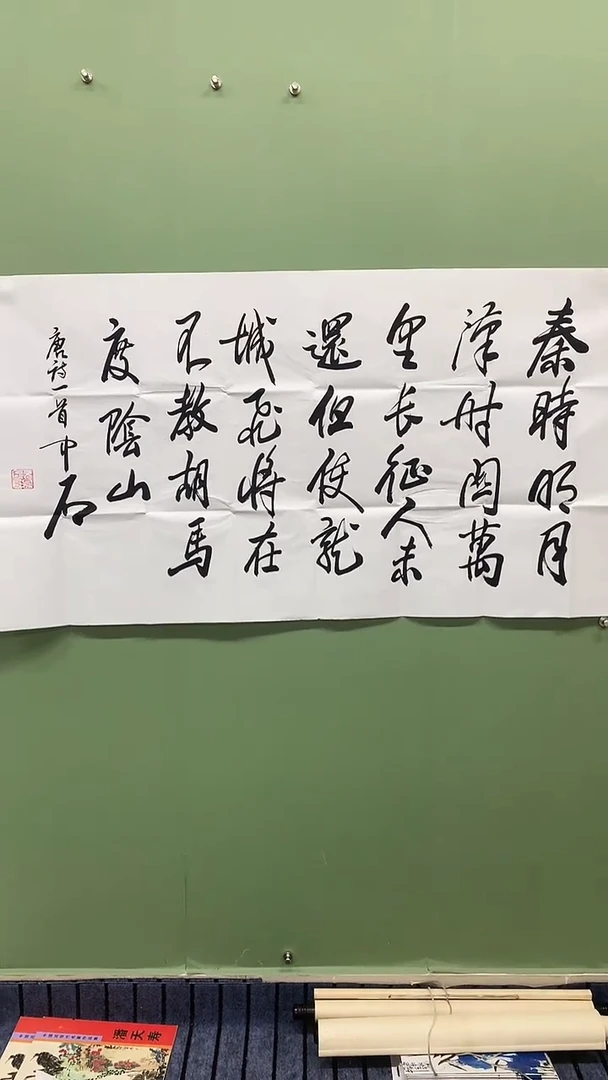 秦時明月
漢時關萬
里長征人未
還但使龍
城飛將在
不教胡馬
度陰山
唐詩一首中石
潘天寿